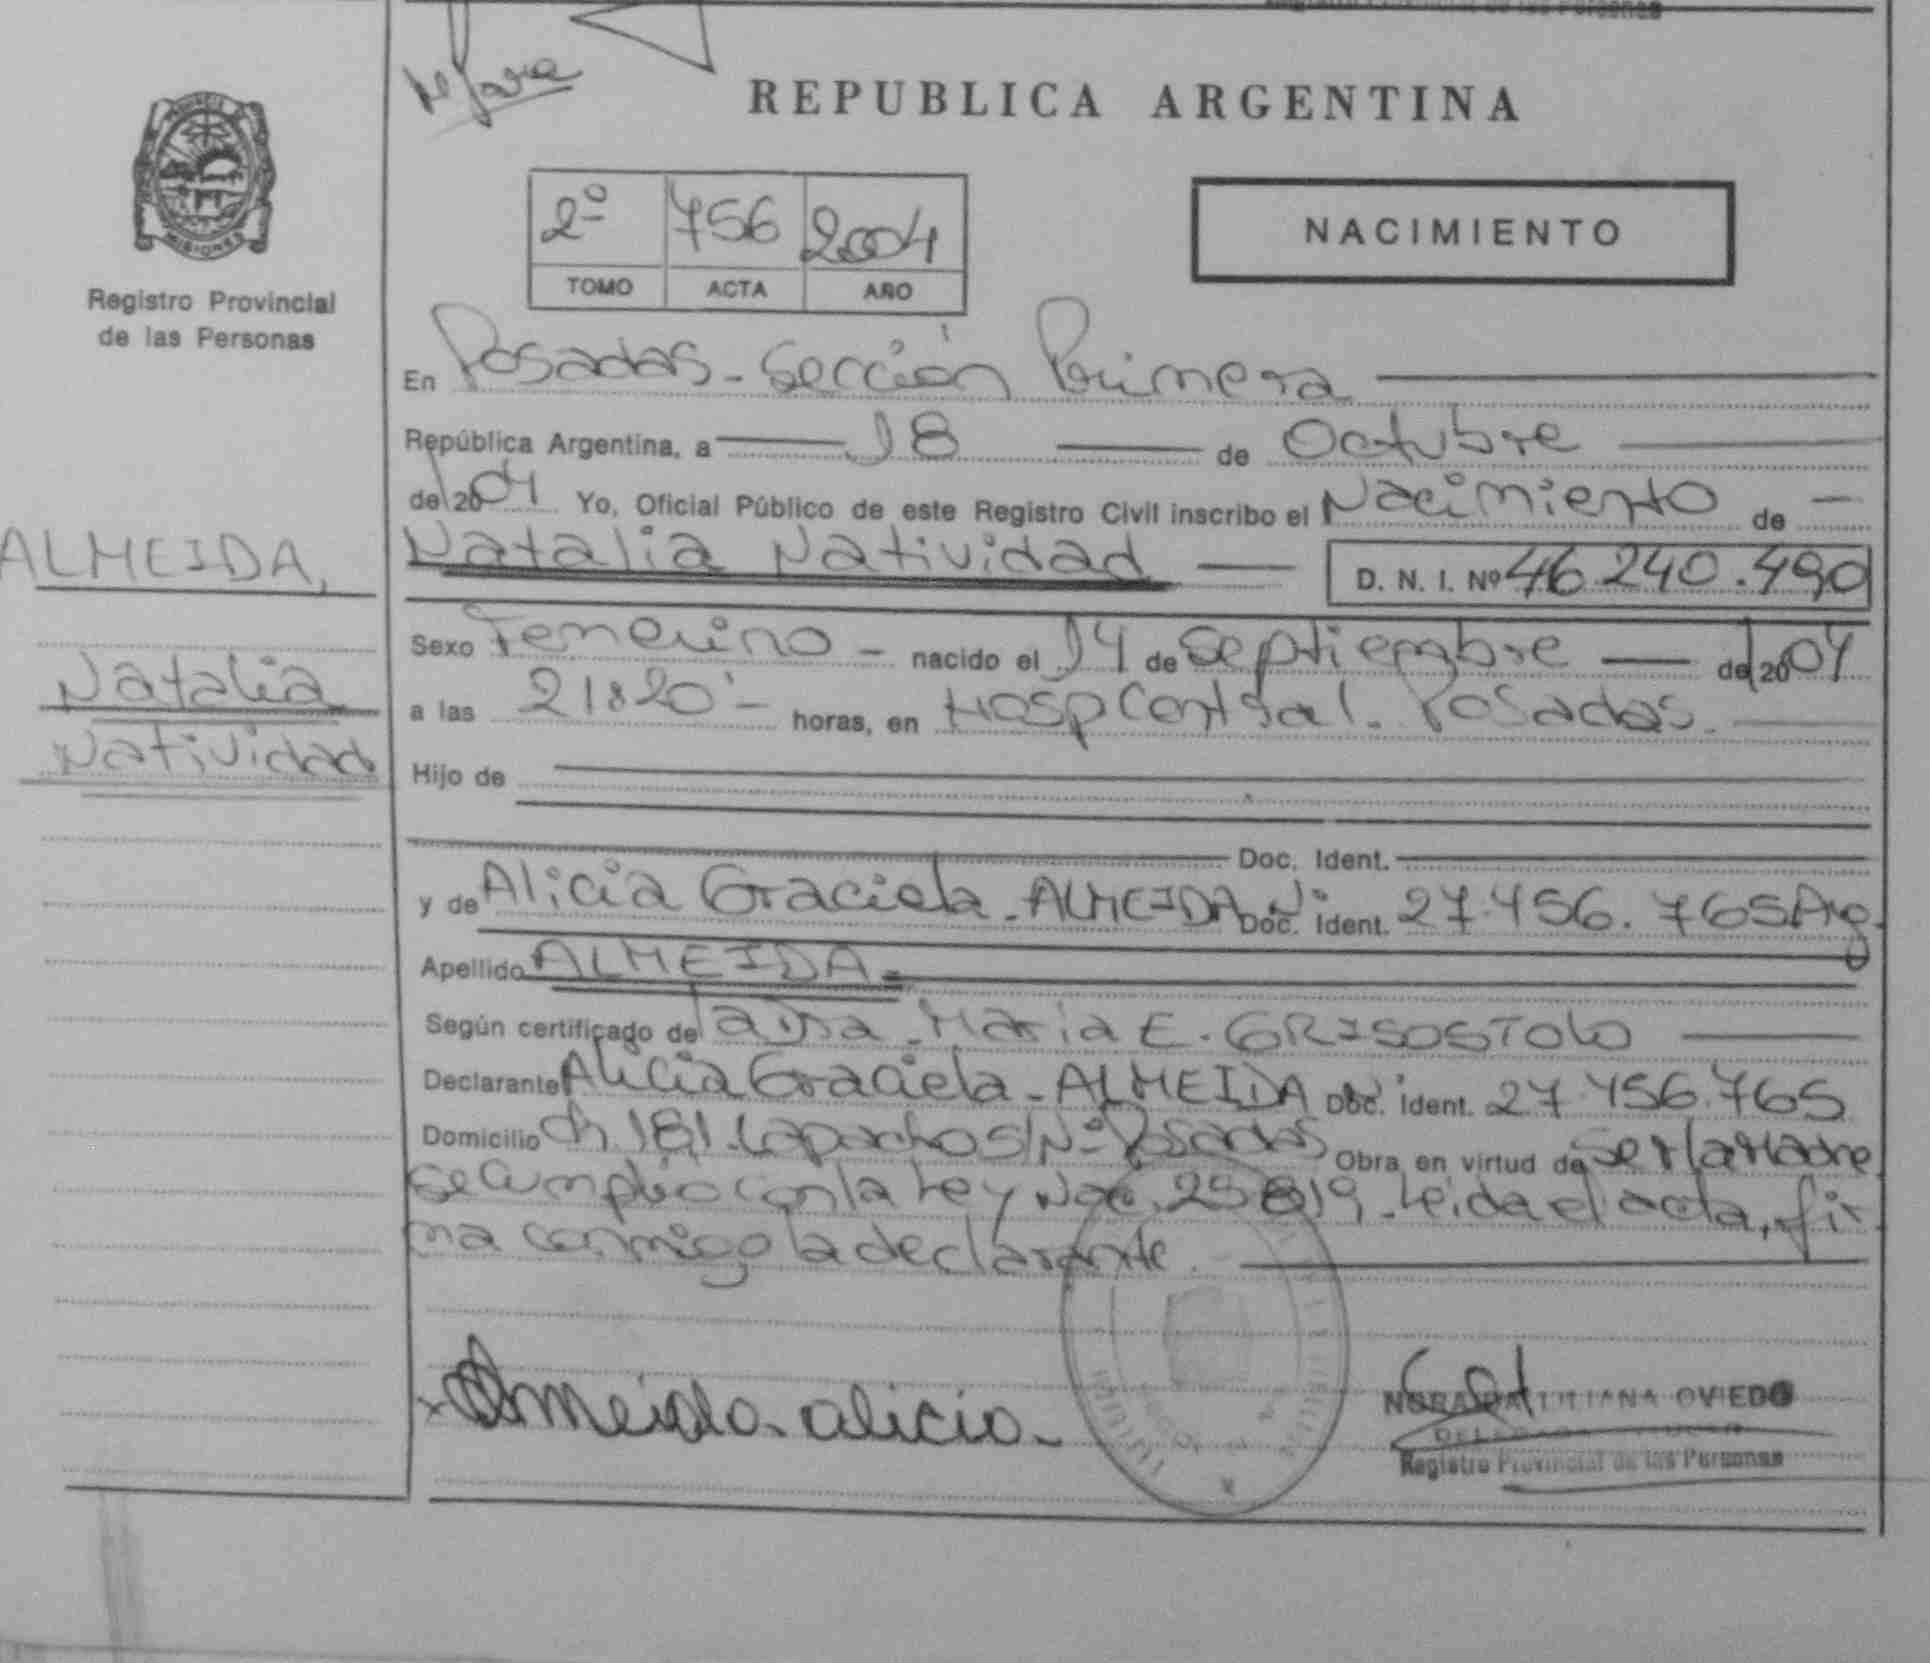 Registro Provincial de las Personas
REPUBLICA ARGENTINA
MISIONES
Registro Provincial
de las Personas
2º 756 2004
TOMO ACTA AÑO
NACIMIENTO
En Posadas - Sección Primera
República Argentina, a 18 de Octubre
de 2004 Yo, Oficial Público de este Registro Civil inscribo el Nacimiento de
Natalia Natividad D. N. I. Nº 46.240.490
ALMEIDA,
Natalia
Natividad
Sexo Femenino - nacido el 14 de Septiembre de 2004
a las 21:20 - horas, en Hosp Central. Posadas.
Hijo de
Doc. Ident.
y de Alicia Graciela - ALMEIDA Doc. Ident. Nº 27.456.765 Arg.
Apellido ALMEIDA =
Según certificado de la Dra. Maria E. GRISOSTOLO
Declarante Alicia Graciela - ALMEIDA Doc. Ident. Nº 27.456.765
Domicilio Ch. 181. Lapacho S/Nº Posadas Obra en virtud de ser la Madre.
Se cumplió con la Ley Nac. 25.819. Leida el acta, fir
ma conmigo la declarante.
Almeida alicia
NORA OVIEDO
Registro Provincial de las Personas